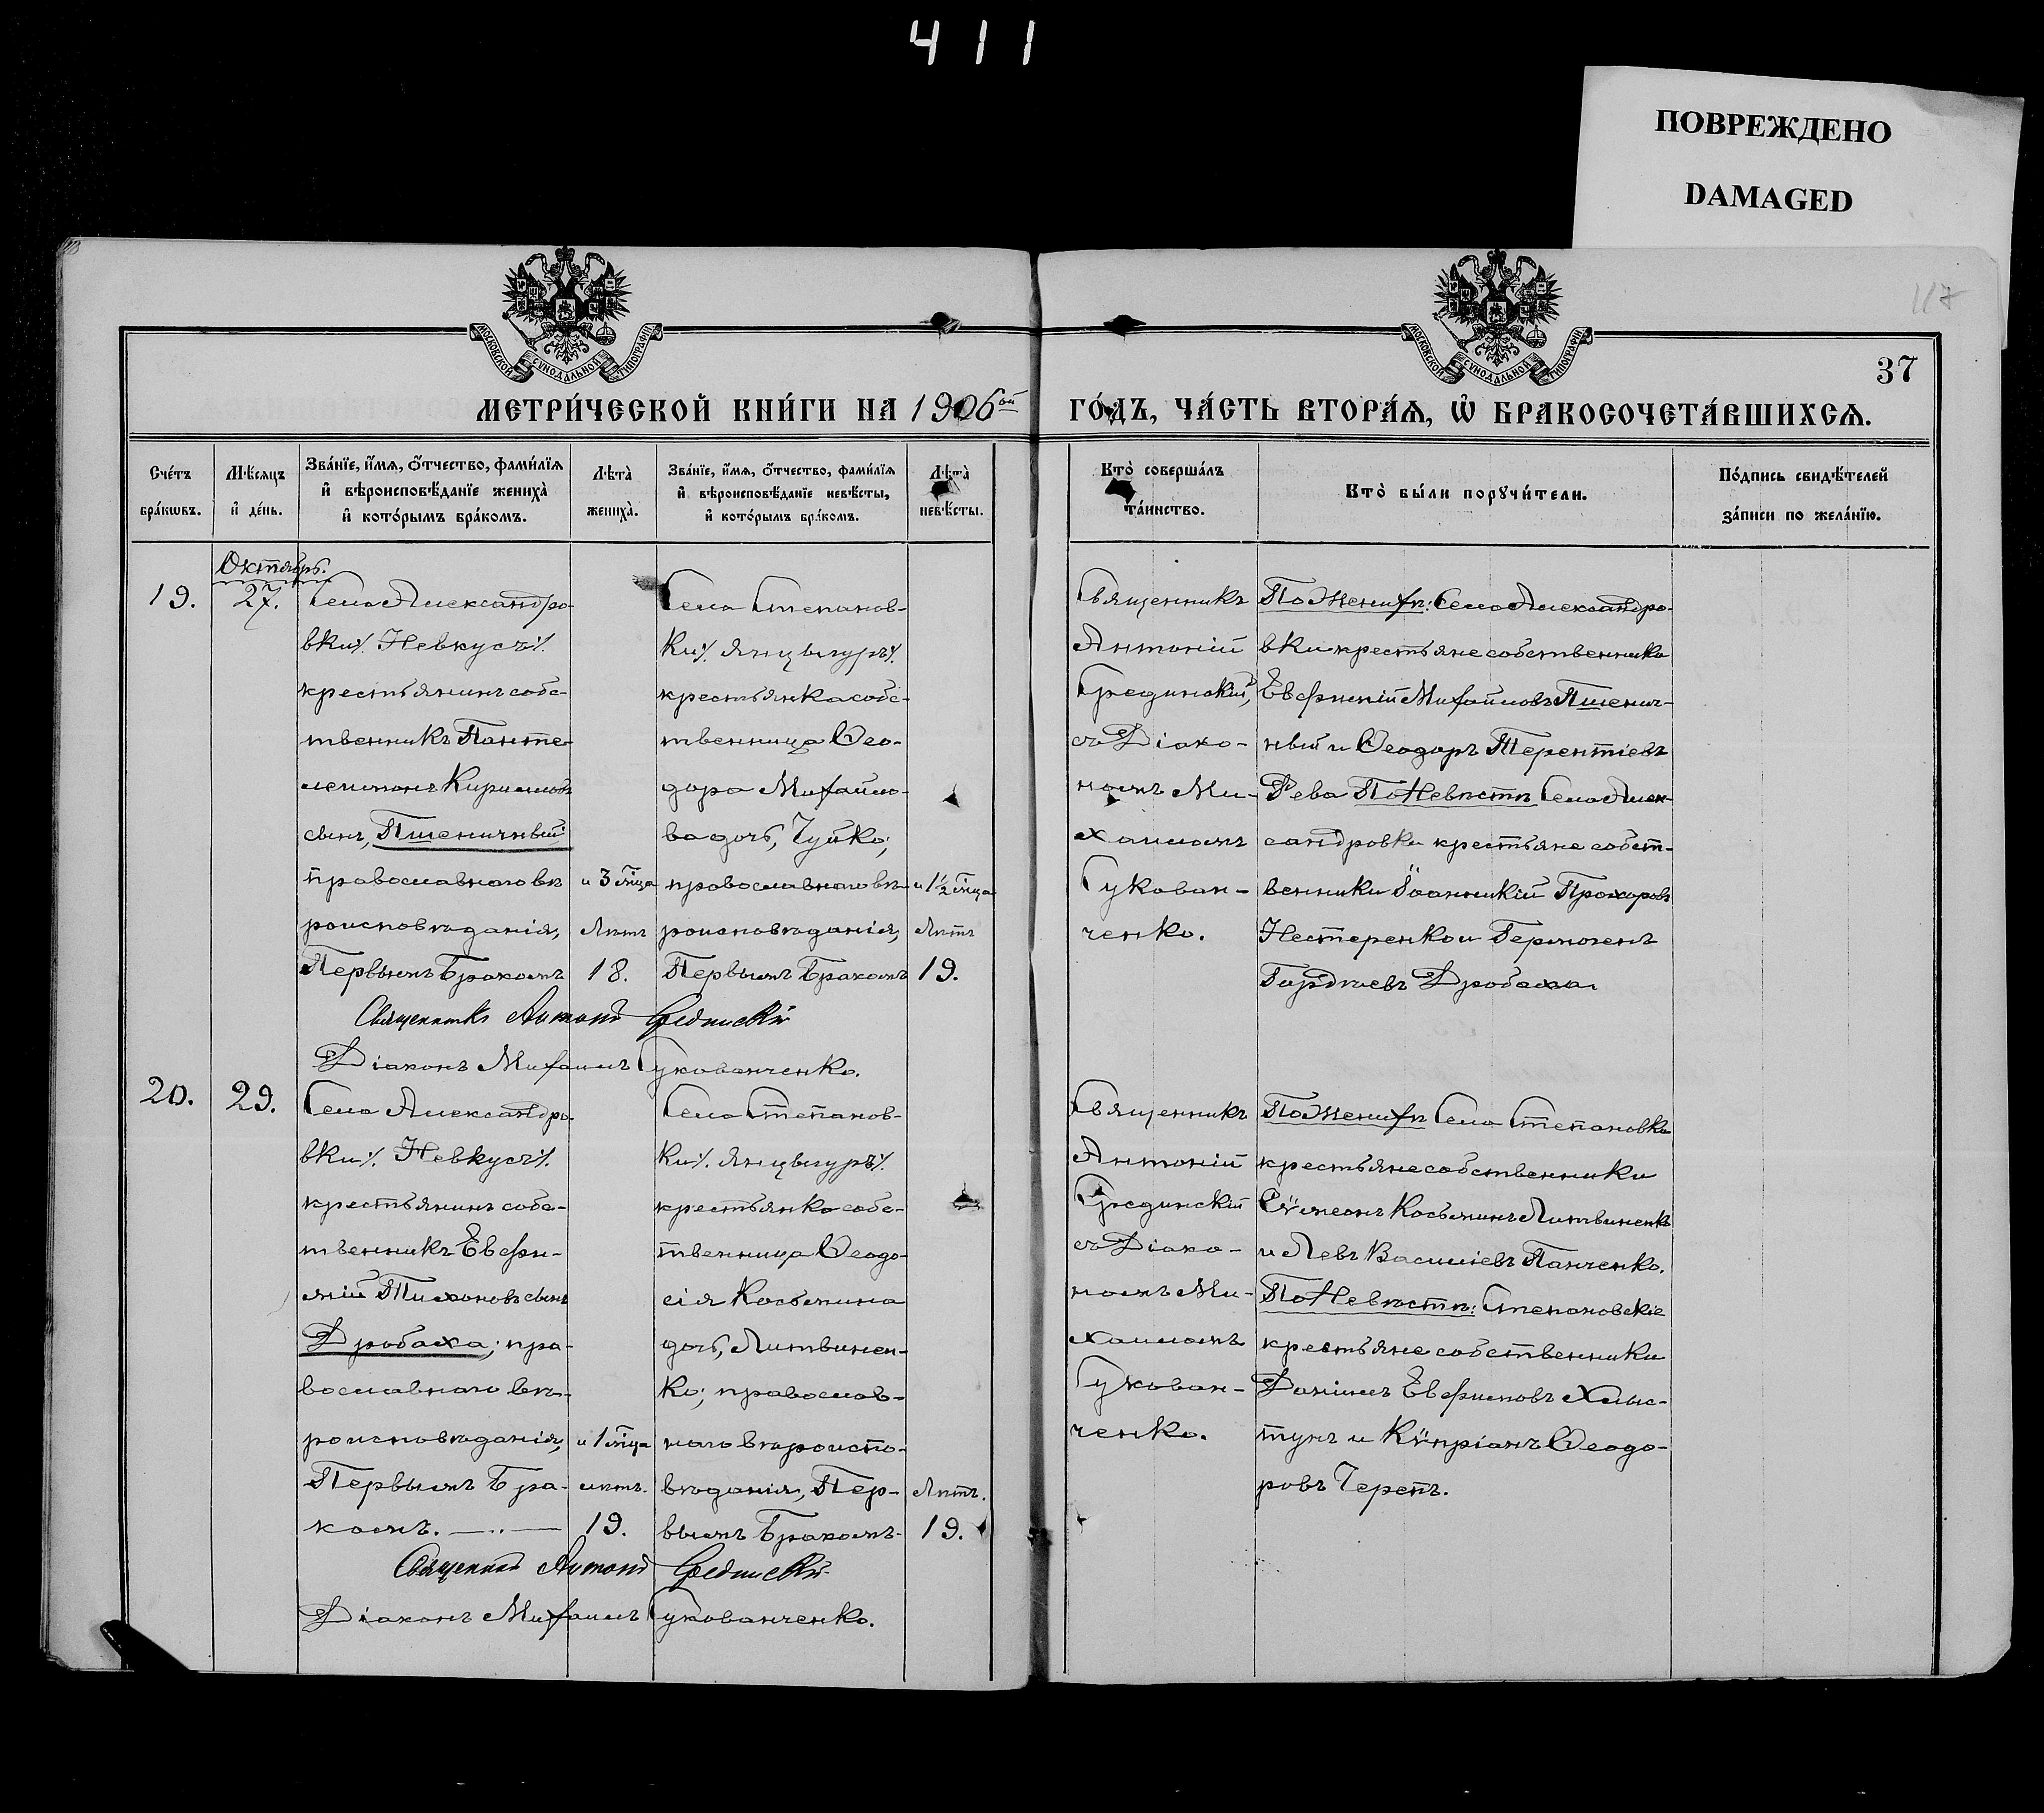 411
ПОВРЕЖДЕНО
DAMAGED
117
37
МОСКОВСКОЙ СѴНОДАЛЬНОЙ ТИПОГРАФІИ
МОСКОВСКОЙ СѴНОДАЛЬНОЙ ТИПОГРАФІИ
МЕТРИ́ЧЕСКОЙ КНИ́ГИ НА 1906ой ГО́ДЪ, ЧА́СТЬ ВТОРА́Ѧ, Ѡ҆ БРАКОСОЧЕТА́ВШИХСѦ.
Сче́тъ бра́кѡвъ.
Мѣ́сяцъ и҆ де́нь.
Зва́нїе, и҆́мѧ, ѻ҆́тчество, фами́лїѧ
и҆ вѣроисповѣ́данїе жениха̀
и҆ кото́рымъ бра́комъ.
Лѣ́та̀ жениха̀.
Зва́нїе, и҆́мѧ, ѻ҆́тчество, фами́лїѧ
и҆ вѣроисповѣ́данїе невѣ́сты,
и҆ кото́рымъ бра́комъ.
Лѣ́та̀ невѣ́сты.
Кто̀ соверша́лъ та́инство.
Кто̀ бы́ли порꙋчи́тели.
По́дпись свидѣ́телей
за́писи по жела́нїю.
Октябрь.
19.
27.
Села Александро-
вки ⁒ Невкусъ ⁒
крестьянинъ собс-
твенникъ Панте-
леимонъ Кириловъ
сынъ, Пшеничный;
православнаго вѣ-
роисповѣданія,
Первымъ бракомъ
и 3 м͞ца
Лѣтъ
18.
Села Степанов-
ки ⁒ Янцыгуръ ⁒
крестьянка собс-
твенница Ѳео-
дора Михайло-
ва дочь, Чуйко;
православнаго вѣ-
роисповѣданія,
Первымъ бракомъ
и 1½ м͞ца
Лѣтъ
19.
Священникъ
Антоній
Срединскій,
съ Діако-
номъ Ми-
хаиломъ
Сукован-
ченко.
По Женихѣ: Села Александро-
вки крестьяне собственники
Евфимій Михайловъ Пшенич-
ный и Ѳеодоръ Терентіевъ
Рева По Невѣстѣ Села Алек-
сандровки крестьяне собст-
венники Іоанникій Прохоровъ
Нестеренко и Гермогенъ
Гордѣевъ Дробаха.
Священникъ Антоній Срединскій
Діаконъ Михаилъ Сукованченко.
20.
29.
Села Александро-
вки ⁒ Невкусъ ⁒
крестьянинъ собс-
твенникъ Евфи-
мій Тихоновъ сынъ
Дробаха; пра-
вославнаго вѣ-
роисповѣданія,
Первымъ Бра-
комъ.
и 1 м͞ца
лѣтъ.
19.
Села Степанов-
ки ⁒ Янцыгуръ ⁒
крестьянка собс-
твенница Ѳеодо-
сія Косьмина
дочь, Литвинен-
ко; православ-
наго вѣроиспо-
вѣданія, Пер-
вымъ Бракомъ
Лѣтъ.
19.
Священникъ
Антоній
Срединскій
съ Діако-
номъ Ми-
хаиломъ
Сукован-
ченко.
По Женихѣ Села Степановки
крестьяне собственники
Сѵмеонъ Косьминъ Литвиненко
и Левъ Василіевъ Панченко.
По Невѣстѣ: Степановскіе
крестьяне собственники
Даніилъ Евфимовъ Хлыс-
тунъ и Кѵпріанъ Ѳеодо-
ровъ Черепъ.
Священникъ Антоній Срединскій
Діаконъ Михаилъ Сукованченко.